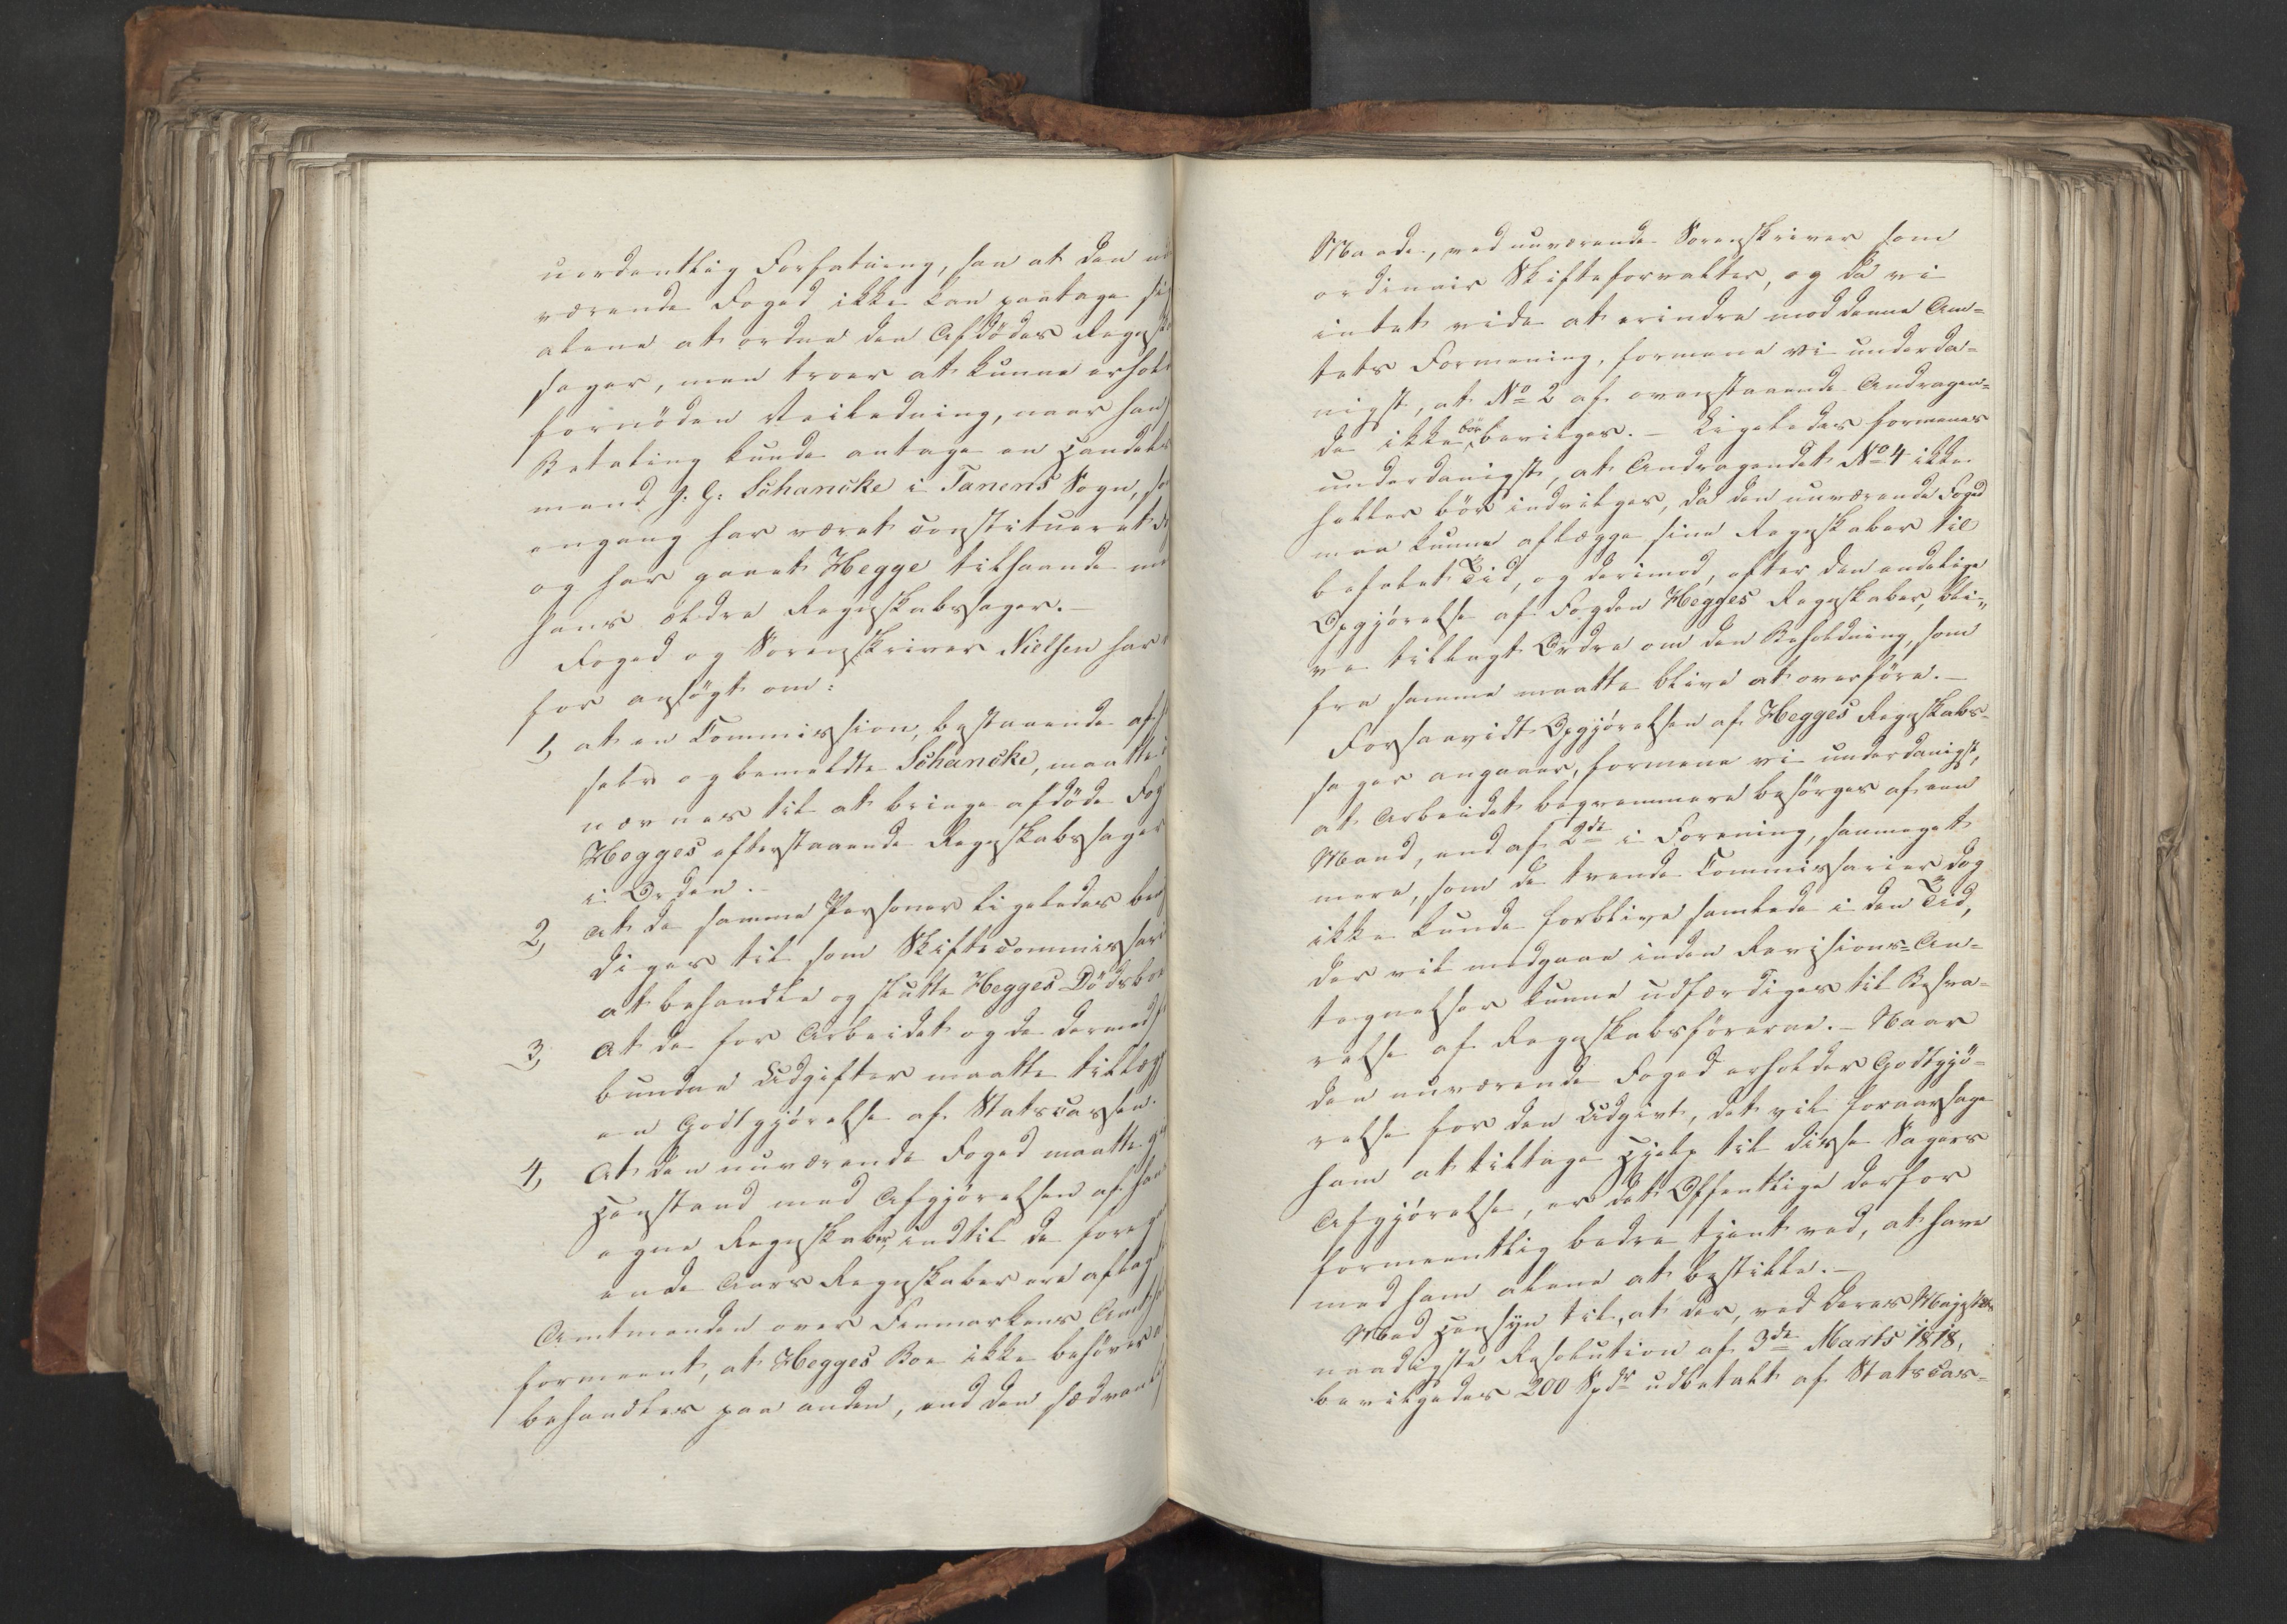 uordentlig Forfatning, saa at den nu
værende Foged ikke kan paatage si
alene at ordne den Afdödes Regnsk
sager, men troer at kunne erhol
fornöden Veiledning, naar han
Betaling kunde antage en Handels
mand J. G: Schancke i Tanens Sogn, so
engang har været constitueret
og har gaaet Hegge tilhaande me
hans ældre Regnskabssager.-
Foged og Sorenskriver Nielsen har
for ansögt om:
1, at en Commission, bestaaende af
selv og bemeldte Schancke, maatte
nævnes til at bringe afdöde Fog
Hegges efterstaaende Regnskabssager
i Orden.-
2, At de samme Personer ligeledes bem
diges til som Skiftecommissari
at behandle og slutte Hegges Dödsboe
3, At de for Arbeidet og de dermed
bundne Udgifter maatte tillæg
en Godtgjörelse af Statscassen.
4, At den nuværende Foged maatte gi
Henstand med Afgjörelsen af han
egne Regnskaber, indtil de foreg
ende Aars Regnskaber ere aflag
Amtmanden over Finmarkens Amt
formeent, at Hegges Boe ikke behöver
behandles paa anden, end den sædvanl
Maade, ved nuværende Sorenskriver som
ordinair Skifteforvalter, og da vi
intet vide at erindre mod denne Am=
tets Formening, formene vi underda=
nigst, at No 2 af ovenstaaende Andragen=
de ikke bör bevilges.- Ligeledes formenes
underdanigst, at Andragendet No 4 ikke
heller bör indvilges, da den nuværende Foged
maa kunne aflægge sine Regnskaber til
befalet Tid, og derimod, efter den endelige
Opgjörelse af Fogden Hegges Regnskaber, bli=
ve tillagt Ordre om den Beholdning, som
fra samme maatte blive at overföre.-
Forsaavidt Opgjörelsen af Hegges Regnskabs=
sager angaaer, formene vi underdanigst,
at Arbeidet beqvemmere besörges af een
Mand, end af 2de i Forening, saameget
mere, som de tvende Commissarier dog
ikke kunde forblive samlede i den Tid,
der vil medgaae inden Revisions=An=
tegnelser kunne udfærdiges til Besva=
relse af Regnskabsförerne.- Naar
den nuværende Foged erholder Godtgjö=
relse for den Udgivt, det vil foraarsage
ham at tiltage Hjelp til disse Sagers
Afgjörelse, er det Offentlige derfor
formeentlig bedre tjent ved, at have
med ham alene at bestille.-
Med Hensyn til, at der, ved Deres Majestæts
naadigste Resolution af 3de Marts 1818,
bevilgedes 200 Spdr udbetalt af Statscas=